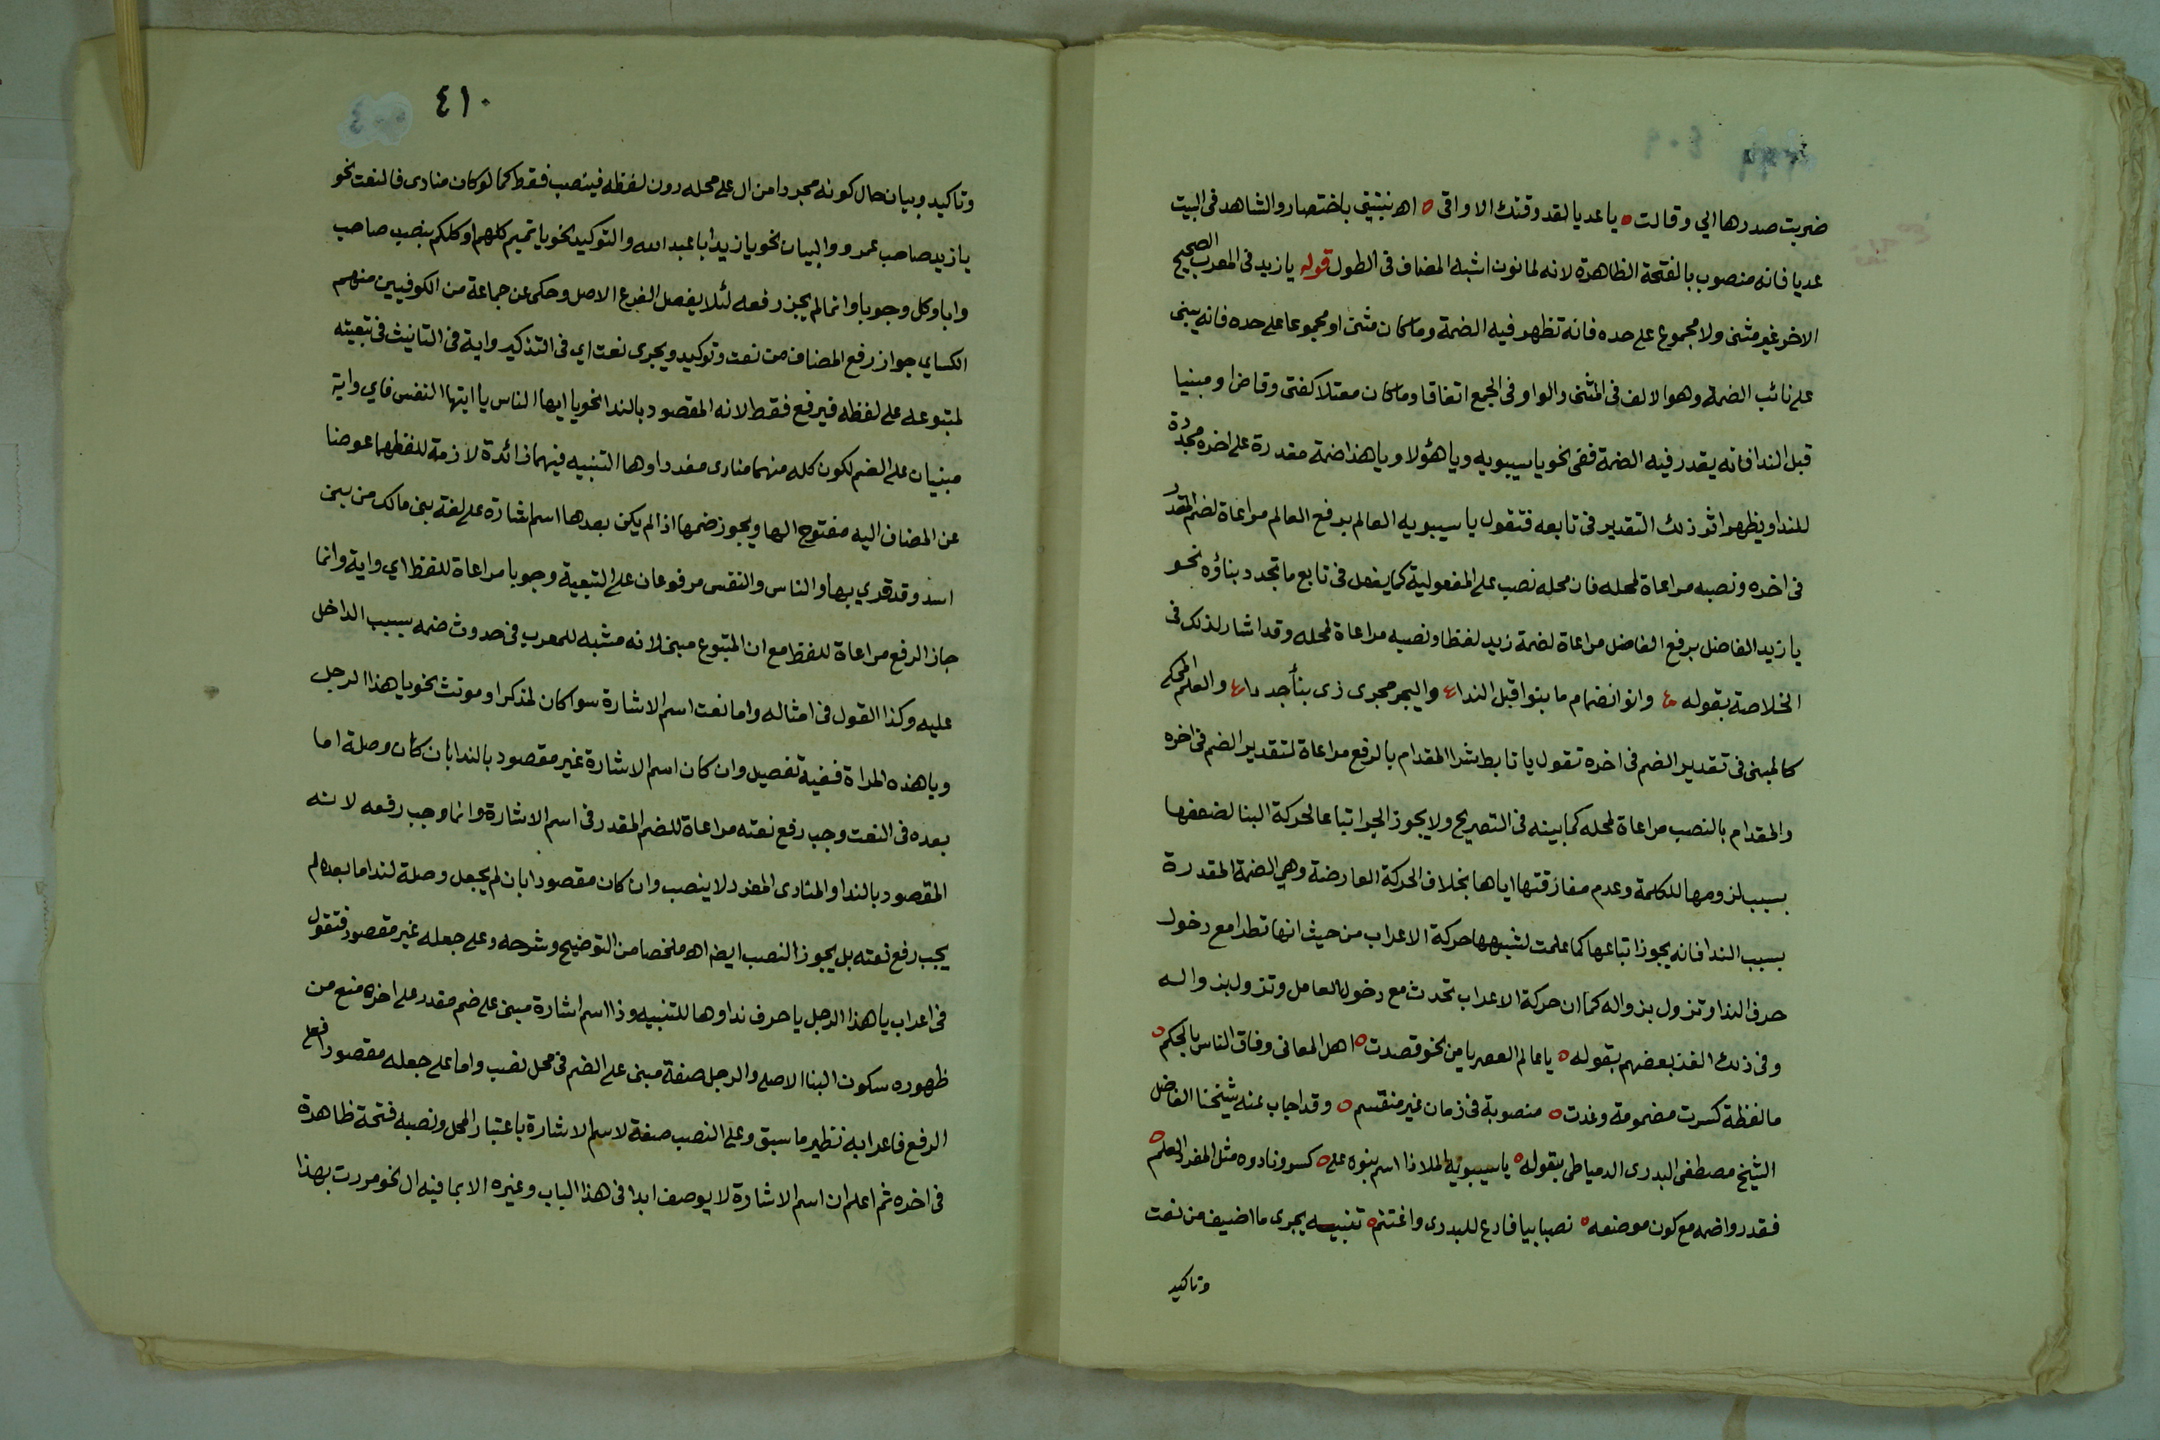 ٤٠٩
ضربت صدرها الي وقالت ه يا عديا لقد وقتك الاواقى ه اهـ نبتيتي باختصار والشاهد فى البيت
عديا فانه منصوب بالفتحة الظاهرة لانه لما نون اشبه المضاف فى الطول قوله يا زيد فى المعرب الصحيح
الاخر غير مثنى ولا مجموع على حده فانه تظهر فيه الضمة وما كان مثنى او مجموعا على حده فانه يبنى
على نائب الضمة وهو الالف فى المثنى والواو فى الجمع اتفاقا وما كان معتلا كفتى وقاض او مبنيا
قبل الندا فانه يقدر فيه الضمة ففى نحو يا سيبويه ويا هؤلا ويا هذا ضمة مقدرة على اخره مجددة
للندا ويظهر اثر ذلك التقدير فى تابعه فتقول يا سيبويه العالم برفع العالم مراعاة لضم المقدر
فى اخره ونصبه مراعاة لمحله فان محله نصب على المفعولية كما يفعل فى تابع ما تجدد بناؤه نحو
يا زيد الفاضل برفع الفاضل مراعاة لضمة زيد لفظا ونصبه مراعاة لمحله وقد اشار لذلك فى
الخلاصة بقوله وانو انضمام ما بنوا قبل الندا واليجر مجرى ذى بناء جددا والعلم المحكى
كالمبنى فى تقدير الضم فى اخره تقول يا تابط شرا المقدام بالرفع مراعاة لتقدير الضم فى اخره
والمقدام بالنصب مراعاة لمحله كما بينه فى التصريح ولا يجوز الجر اتباعا لحركة البنا لضعفها
بسبب لزومها للكلمة وعدم مفارقتها اياها بخلاف الحركة العارضة وهي الضمة المقدرة
بسبب الندا فانه يجوز اتباعها كما علمت لشبهها حركة الاعراب من حيث انها تطرا مع دخول
حرف الندا وتزول بزواله كما ان حركة الاعراب تحدث مع دخول العامل وتزول بزواله
وفى ذلك الغز بعضهم بقوله ه يا عالم العصر يا من نحو قصدت ه اهل المعانى وفاق الناس بالحكم ه
ما لفظة كسرت مضمومة وغدت ه منصوبة فى زمان غير منقسم ه وقد اجاب عنه شيخنا الفاضل
الشيخ مصطفى البدرى الدمياطى بقوله ه يا سيبويه الملاذا اسم بنوه على ه كسر ونادوه مثل المفرد العلم ه
فقدروا ضمه مع كون موضعه ه نصبا بيا فادع للبدرى واغتنم ه تنبيه يجرى ما اضيف من نعت
وتاكيد
٤١٠
وتاكيد وبيان حال كونه مجردا من ال على محله دون لفظه فينصب فقط كما لو كان منادى فالنعت نحو
يا زيد صاحب عمرو والبيان نحو يا زيد ابا عبد الله والتوكيد نحو يا تميم كلهم او كلكم بنصب صاحب
وابا وكل وجوبا وانما لم يجز رفعه لئلا يفضل الفرع الاصل وحكى عن جماعة من الكوفيين منهم
الكساي جواز رفع المضاف من نعت وتوكيد ويجرى نعت اي فى التذكير واية فى التانيث فى تبعيته
لمتبوعه على لفظه فيرفع فقط لانه المقصود بالندا نحو يا ايها الناس يا ايتها النفس فاي واية
مبنيان على الضم لكون كله منهما منادى مفردا وها التنبيه فيهما زائدة لازمة للفظهما عوضا
عن المضاف اليه مفتوح الها ويجوز ضمها اذا لم يكن بعدها اسم اشارة على لغة بنى مالك من بنى
اسد وقد قري بها والناس والنفس مرفوعان على التبعية وجوبا مراعاة للفظ اي واية وانما
جاز الرفع مراعاة للفظ مع ان المتبوع مبنى لانه مشبه للمعرب فى حدوث ضمه بسبب الداخل
عليه وكذا القول فى امثاله واما نعت اسم الاشارة سوا كان لمذكر او مونث نحو يا هذا الرجل
ويا هذه المراة ففيه تفصيل وان كان اسم الاشارة غير مقصود بالندا بان كان وصلة اما
بعده فى النعت وجب رفع نعته مراعاة للضم المقدر فى اسم الاشارة وانما وجب رفعه لانه
المقصود بالندا والمنادى المفرد لا ينصب وان كان مقصودا بان لم يجعل وصلة لندا ما بعده لم
يجب رفع نعته بل يجوز النصب ايضا اهـ ملخصا من التوضيح وشرحه وعلى جعله غير مقصود فتقول
فى اعراب يا هذا الرجل يا حرف ندا وها للتنبيه وذا اسم اشارة مبنى على ضم مقدر على اخره منع من
ظهوره سكون البنا الاصلى والرجل صفة مبنى على الضم فى محل نصب واما على جعله مقصودا فعلى
الرفع فاعرابه نظير ما سبق وعلى النصب صفة لاسم الاشارة باعتبار المحل ونصبه فتحة ظاهرة
فى اخره ثم اعلم ان اسم الاشارة لا يوصف ابدا فى هذا الباب وغيره الا بما فيه ال نحو مررت بهذا